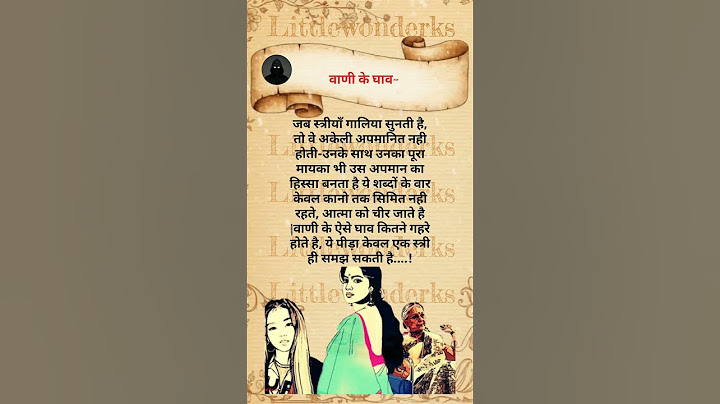 Littlewonderks
वाणी के घाव~
जब स्त्रीयाँ गालिया सुनती है,
तो वे अकेली अपमानित नही
होती-उनके साथ उनका पूरा
मायका भी उस अपमान का
हिस्सा बनता है ये शब्दों के वार
केवल कानो तक सिमित नही
रहते, आत्मा को चीर जाते है
|वाणी के ऐसे घाव कितने गहरे
होते है, ये पीड़ा केवल एक स्त्री
ही समझ सकती है....!
Littlewonderks